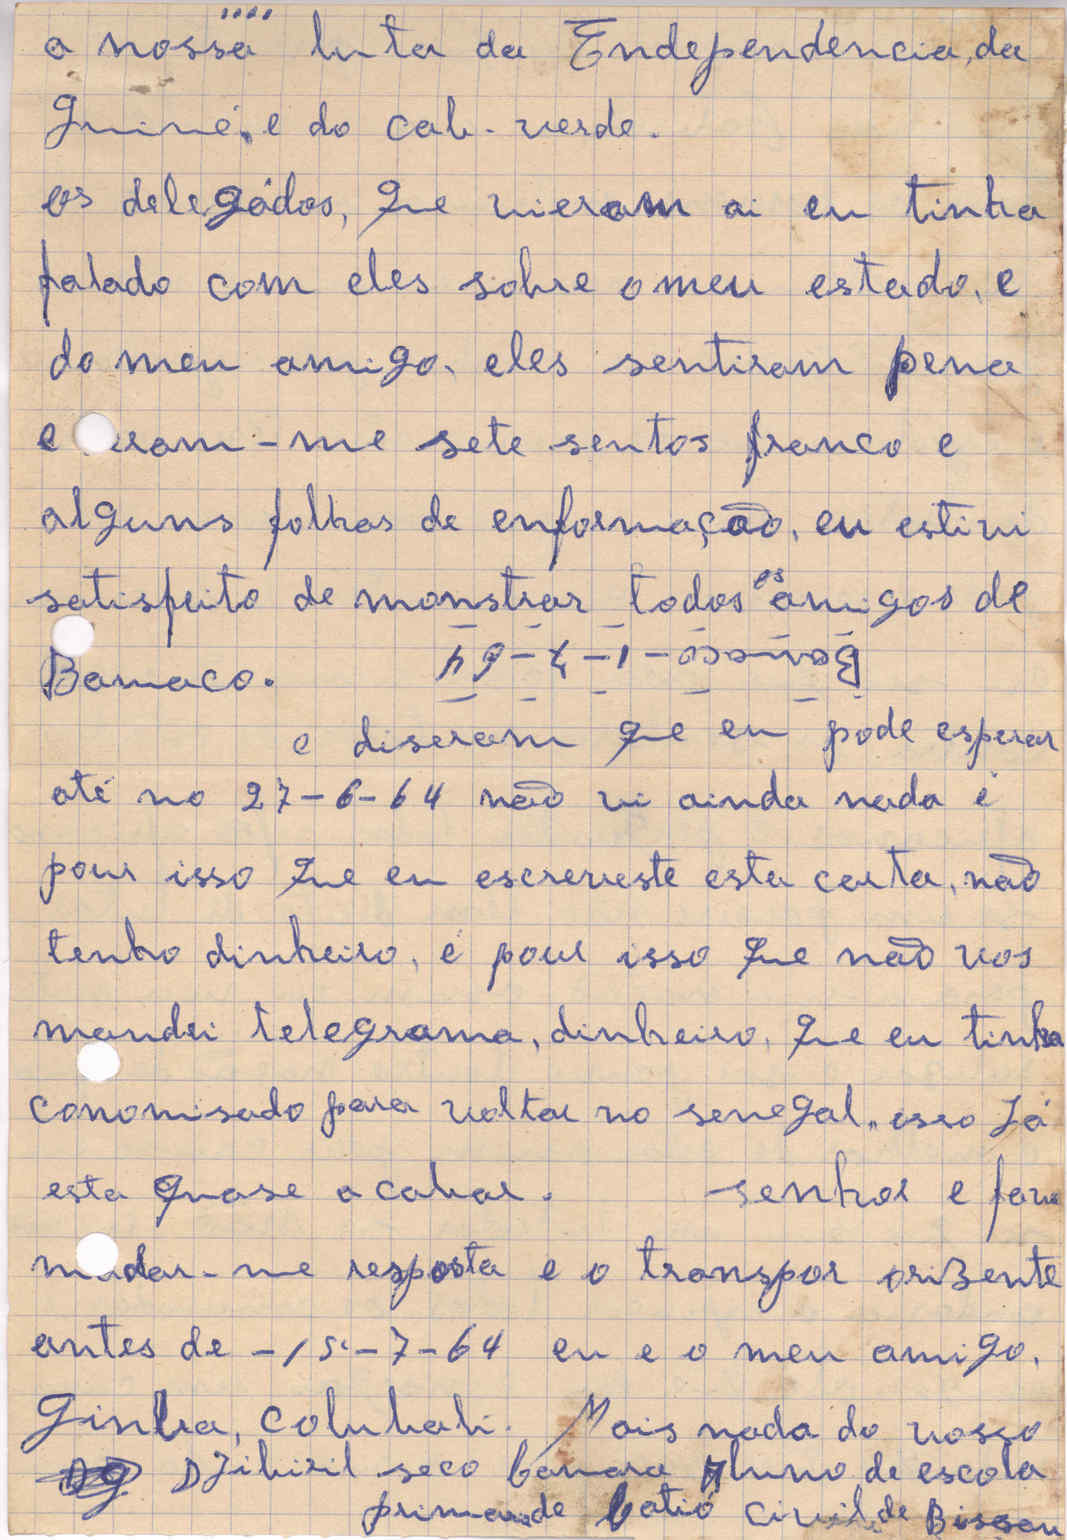 a nossa luta da Endependencia, da
Guiné, e do cab-verde.
os delegádos, que vieram ai eu tinha
falado com eles sobre o meu estado, e
do meu amigo. eles sentiram pena
e deram-me sete sentos franco e
alguns folhas de enformação, eu estivi
satisfeito de monstrar todos os amigos de
Bamaco. Bamaco-1-7-64
e diseram que eu pode esperar
até no 27-6-64 não vi ainda nada é
pour isso que eu escreveste esta carta, não
tenho dinheiro, é pour isso que não vos
mandei telegrama, dinheiro, que eu tinha
conomisado para voltar no senegal, esso Já
esta quase acabar. senhor e favor
mandar-me resposta e o transpor orizente
antes de -15-7-64 eu e o meu amigo.
Ginba, colubali. Mais nada do vosso
DJibiril seco Camara Aluno de escola
primaria de Catió civil de Bissau